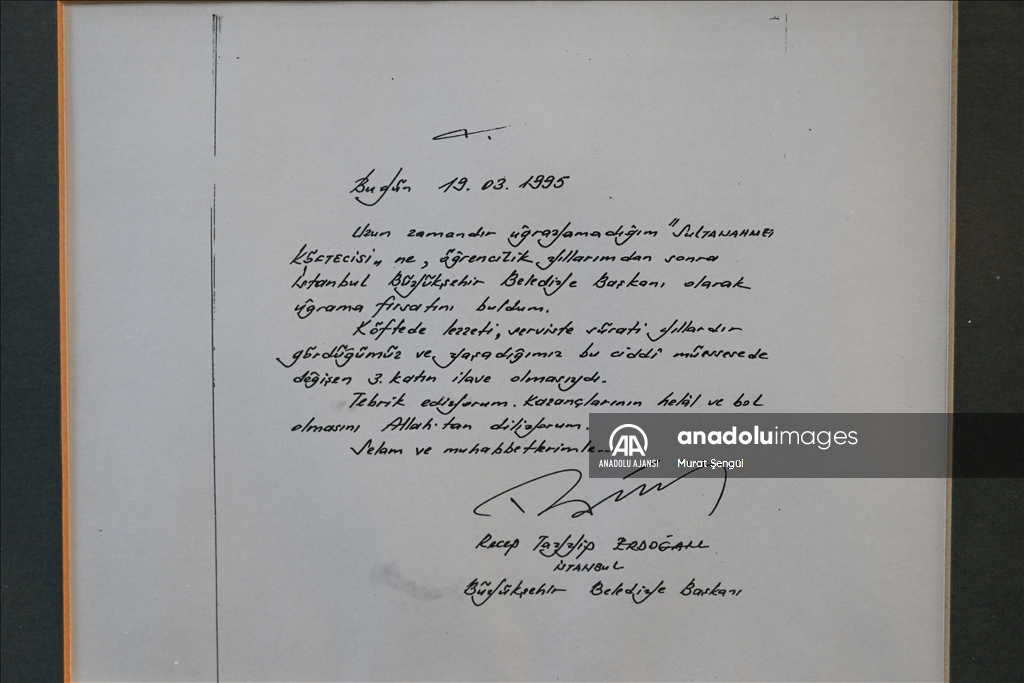 Bugün 19.03.1995
Uzun zamandır uğrayamadığım "SULTANAHMET
KÖFTECİSİ" ne, öğrencilik yıllarımdan sonra
İstanbul Büyükşehir Belediye Başkanı olarak
uğrama fırsatını buldum.
Köftede lezzeti, serviste sürati yıllardır
gördüğümüz ve yaşadığımız bu ciddî müessesede
değişen 3. katın ilave olmasıydı.
Tebrik ediyorum. Kazançlarının helâl ve bol
olmasını Allah'tan diliyorum.
Selam ve muhabbetlerimle...
Recep Tayyip ERDOĞAN
İSTANBUL
Büyükşehir Belediye Başkanı
AA
ANADOLU AJANSI
anadoluimages
Murat Şengül